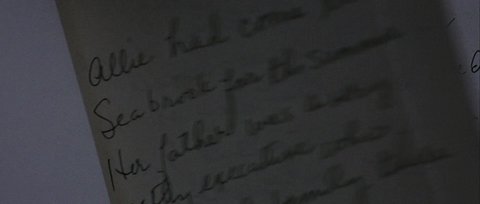 Allie had come
Seabrook for the summer
Her father was a very
executive who
family three